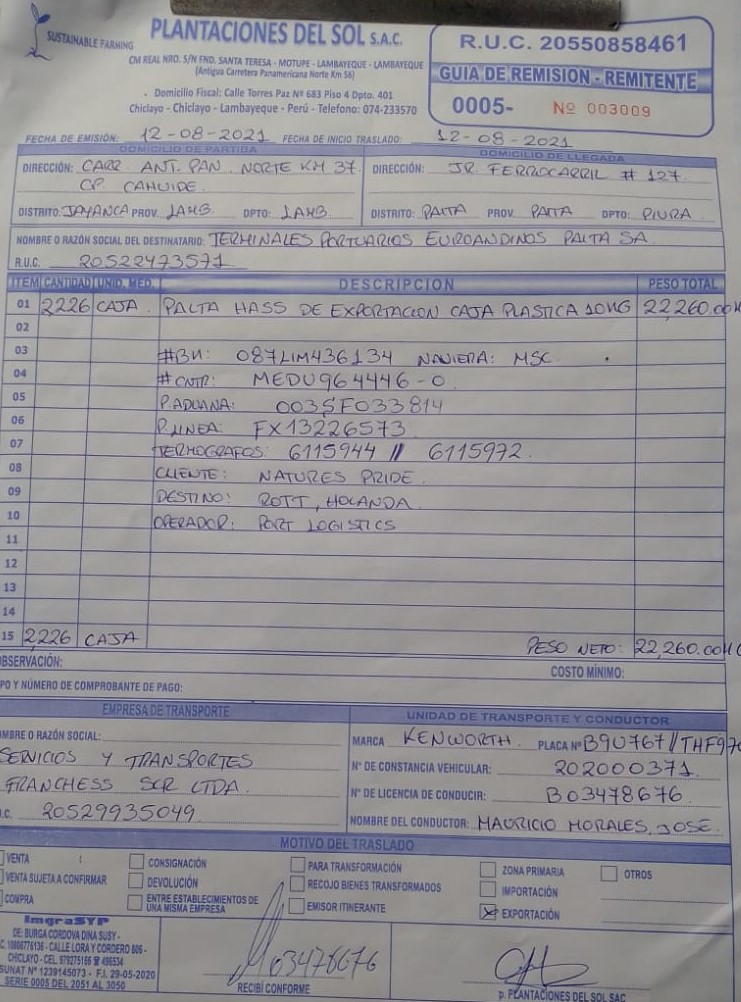 SUSTAINABLE FARMING
PLANTACIONES DEL SOL S.A.C.
CM REAL NRO. S/N FND. SANTA TERESA - MOTUPE - LAMBAYEQUE - LAMBAYEQUE
(Antigua Carretera Panamericana Norte Km 56)
Domicilio Fiscal: Calle Torres Paz Nº 683 Piso 4 Dpto. 401
Chiclayo - Chiclayo - Lambayeque - Perú - Telefono: 074-233570
R.U.C. 20550858461
GUIA DE REMISION - REMITENTE
0005- Nº 003009
FECHA DE EMISIÓN: 12-08-2021 FECHA DE INICIO TRASLADO: 12-08-2021
DOMICILIO DE PARTIDA
DIRECCIÓN: CARR. ANT. PAN. NORTE KM 37
CP. CAHUIDE.
DISTRITO: JAYANCA PROV. LAMB. DPTO: LAMB.
DOMICILIO DE LLEGADA
DIRECCIÓN: JR. FERROCARRIL # 127.
DISTRITO: PAITA PROV. PAITA DPTO: PIURA
NOMBRE O RAZÓN SOCIAL DEL DESTINATARIO: TERMINALES PORTUARIOS EUROANDINOS PAITA SA.
R.U.C. 20522473571
ITEM CANTIDAD UNID. MED. DESCRIPCION PESO TOTAL
01 2226 CAJA. PALTA HASS DE EXPORTACION CAJA PLASTICA 10KG 22,260.00
02
03 #BK: 087LIM436134 NAVIERA: MSC.
04 # CNTR: MEDU964446-0
05 P.ADUANA: 003SF033814
06 P.LINEA: FX13226573
07 TERMOGRAFOS: 6115944 // 6115972.
08 CLIENTE: NATURES PRIDE.
09 DESTINO: ROTT, HOLANDA.
10 OPERADOR: PORT LOGISTICS
11
12
13
14
15 2,226 CAJA PESO NETO: 22,260.00
OBSERVACIÓN: COSTO MÍNIMO:
PO Y NÚMERO DE COMPROBANTE DE PAGO:
EMPRESA DE TRANSPORTE
MBRE O RAZÓN SOCIAL:
SERVICIOS Y TRANSPORTES
FRANCHESS SCR LTDA.
.C. 20529935049
UNIDAD DE TRANSPORTE Y CONDUCTOR
MARCA KENWORTH. PLACA Nº B90767//THF970
Nº DE CONSTANCIA VEHICULAR: 202000371.
Nº DE LICENCIA DE CONDUCIR: B03478676.
NOMBRE DEL CONDUCTOR: MAURICIO MORALES, JOSE.
MOTIVO DEL TRASLADO
VENTA CONSIGNACIÓN PARA TRANSFORMACIÓN ZONA PRIMARIA OTROS
VENTA SUJETA A CONFIRMAR DEVOLUCIÓN RECOJO BIENES TRANSFORMADOS IMPORTACIÓN
COMPRA ENTRE ESTABLECIMIENTOS DE UNA MISMA EMPRESA EMISOR ITINERANTE EXPORTACIÓN
ImgraSYP
DE: BURGA CORDOVA DINA SUSY -
C. 10806776136 - CALLE LORA Y CORDERO 806 -
CHICLAYO - CEL. 979275166 ☎ 496534
SUNAT Nº 1239145073 - F.I. 29-05-2020
SERIE 0005 DEL 2051 AL 3050
03478676
RECIBÍ CONFORME
p. PLANTACIONES DEL SOL SAC